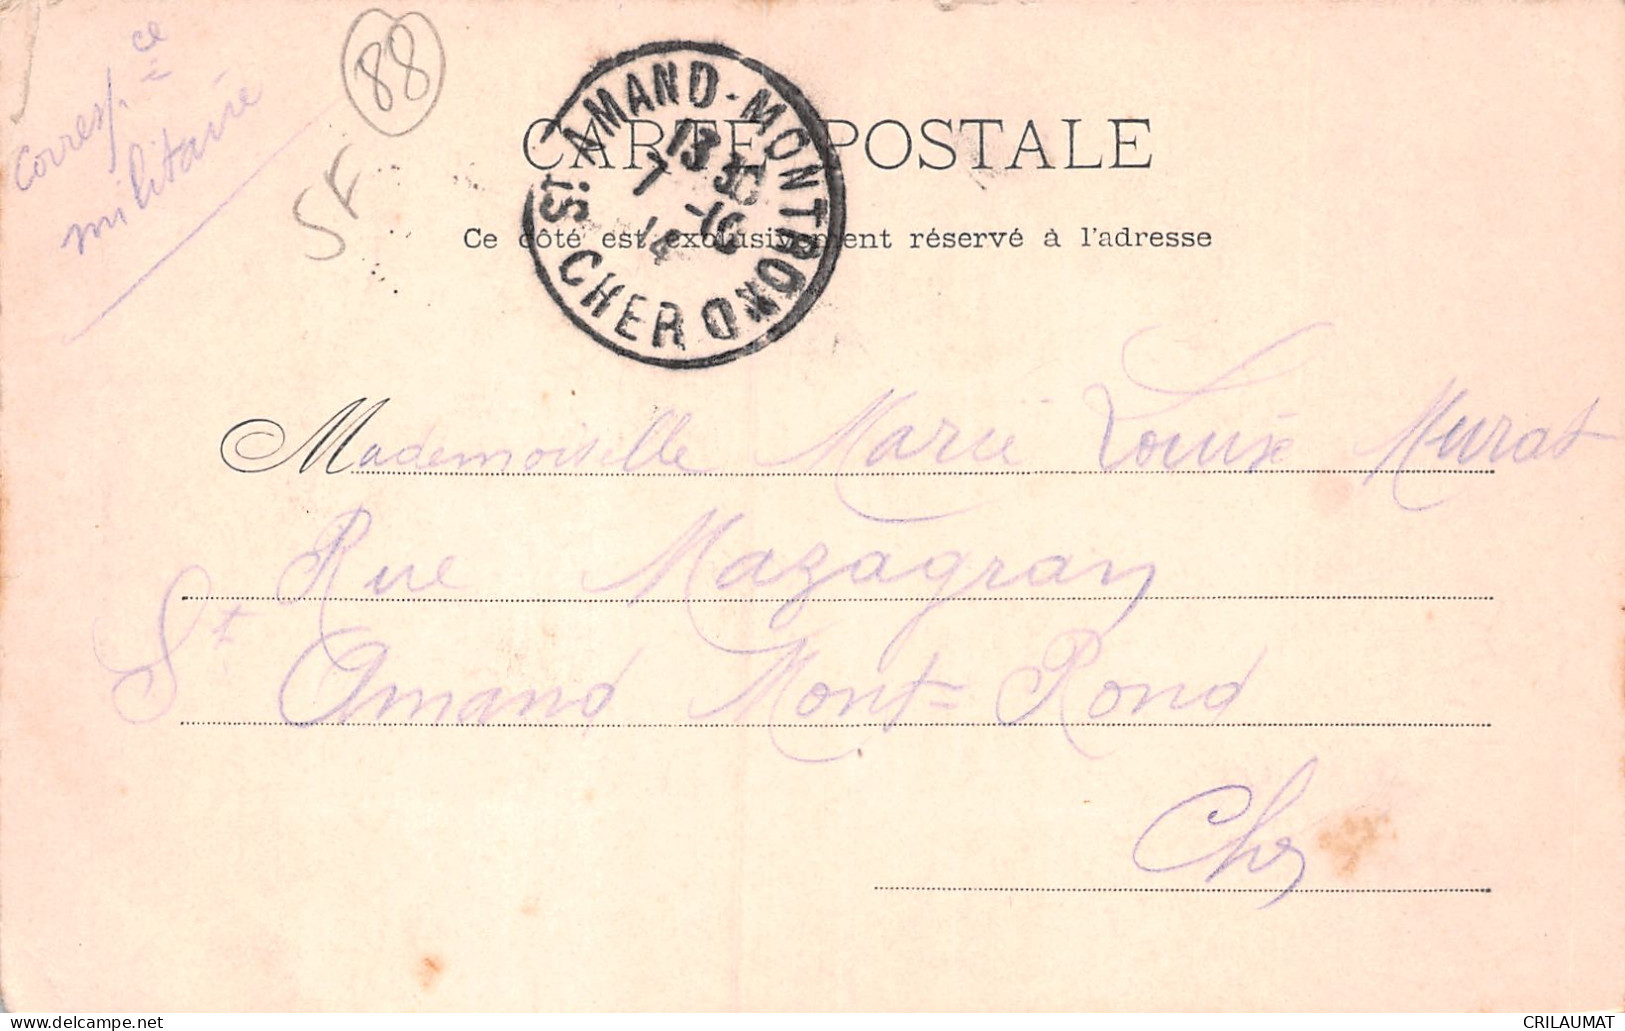 Corresp.ce
militaire
88
5F
CARTE POSTALE
Ce côté est exclusivement réservé à l'adresse
ST AMAND-MONTROND
CHER
13 30
7 -10
14
Mademoiselle Marie Louise Murat
Rue Mazagran
St Amand Mont-Rond
Cher
CRILAUMAT